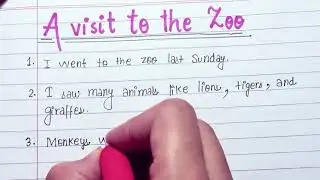 A visit to the Zoo
1. I went to the zoo last Sunday.
2. I saw many animals like lions, tigers, and
giraffes.
3. Monkeys